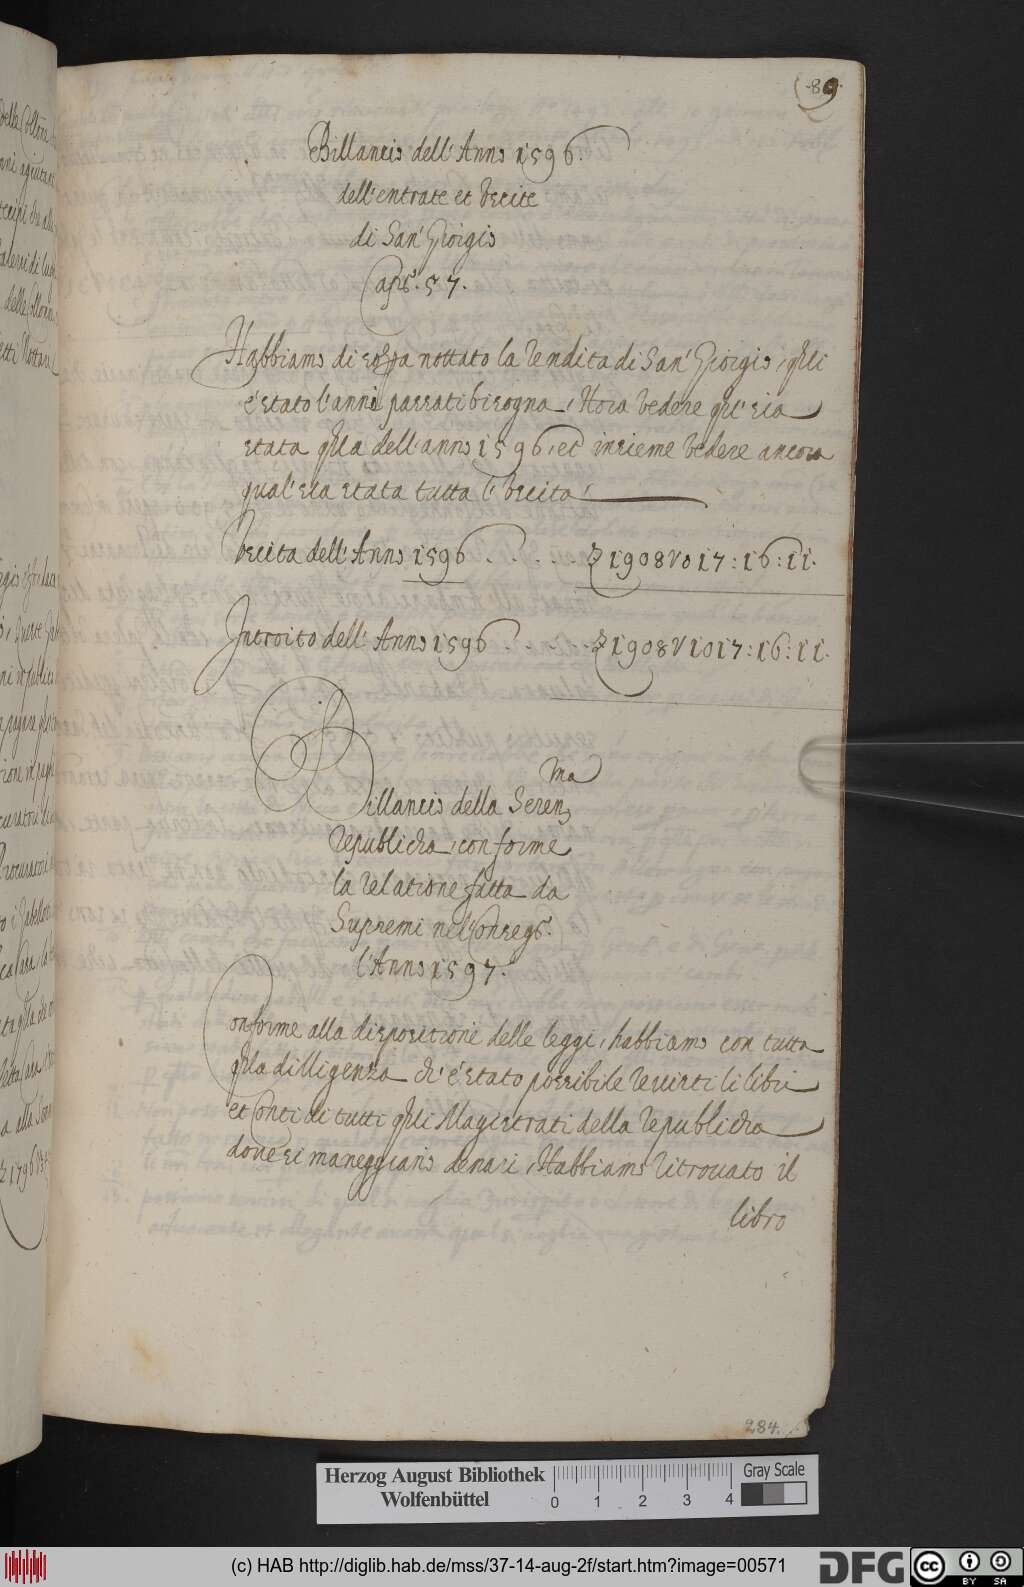 89
Billancio dell'Anno 1596.
dell'entrate et Uscite
di San Giorgio
Cap.º 57.
Habbiamo di sopra nottato la rendita di San Giorgio, qlli
é stato l'anni passati bisogna, Hora vedere qlt' sia
stata qlla dell'anno 1596, et insieme vedere ancora
qual' sia stata tutta l'uscita.
Uscita dell'Anno 1596 . . . . . 1908V017:16:11.
Introito dell'Anno 1596 . . . . 1908V1017:16:11.
Billancio della Seren.ma
Republicha, conforme
la relatione fatta da
Supremi nel Conseg.º
l'Anno 1597.
Conforme alla dispositione delle leggi, habbiamo con tutta
qlla dilligenza ch' é stato possibile revisti li libri
et Conti di tutti qlli Magistrati della Republicha
dove si maneggiano denari, Habbiamo ritrovato il
libro
284.
Herzog August Bibliothek
Wolfenbüttel
0 1 2 3 4
Gray Scale
(c) HAB http://diglib.hab.de/mss/37-14-aug-2f/start.htm?image=00571
DFG
cc BY SA